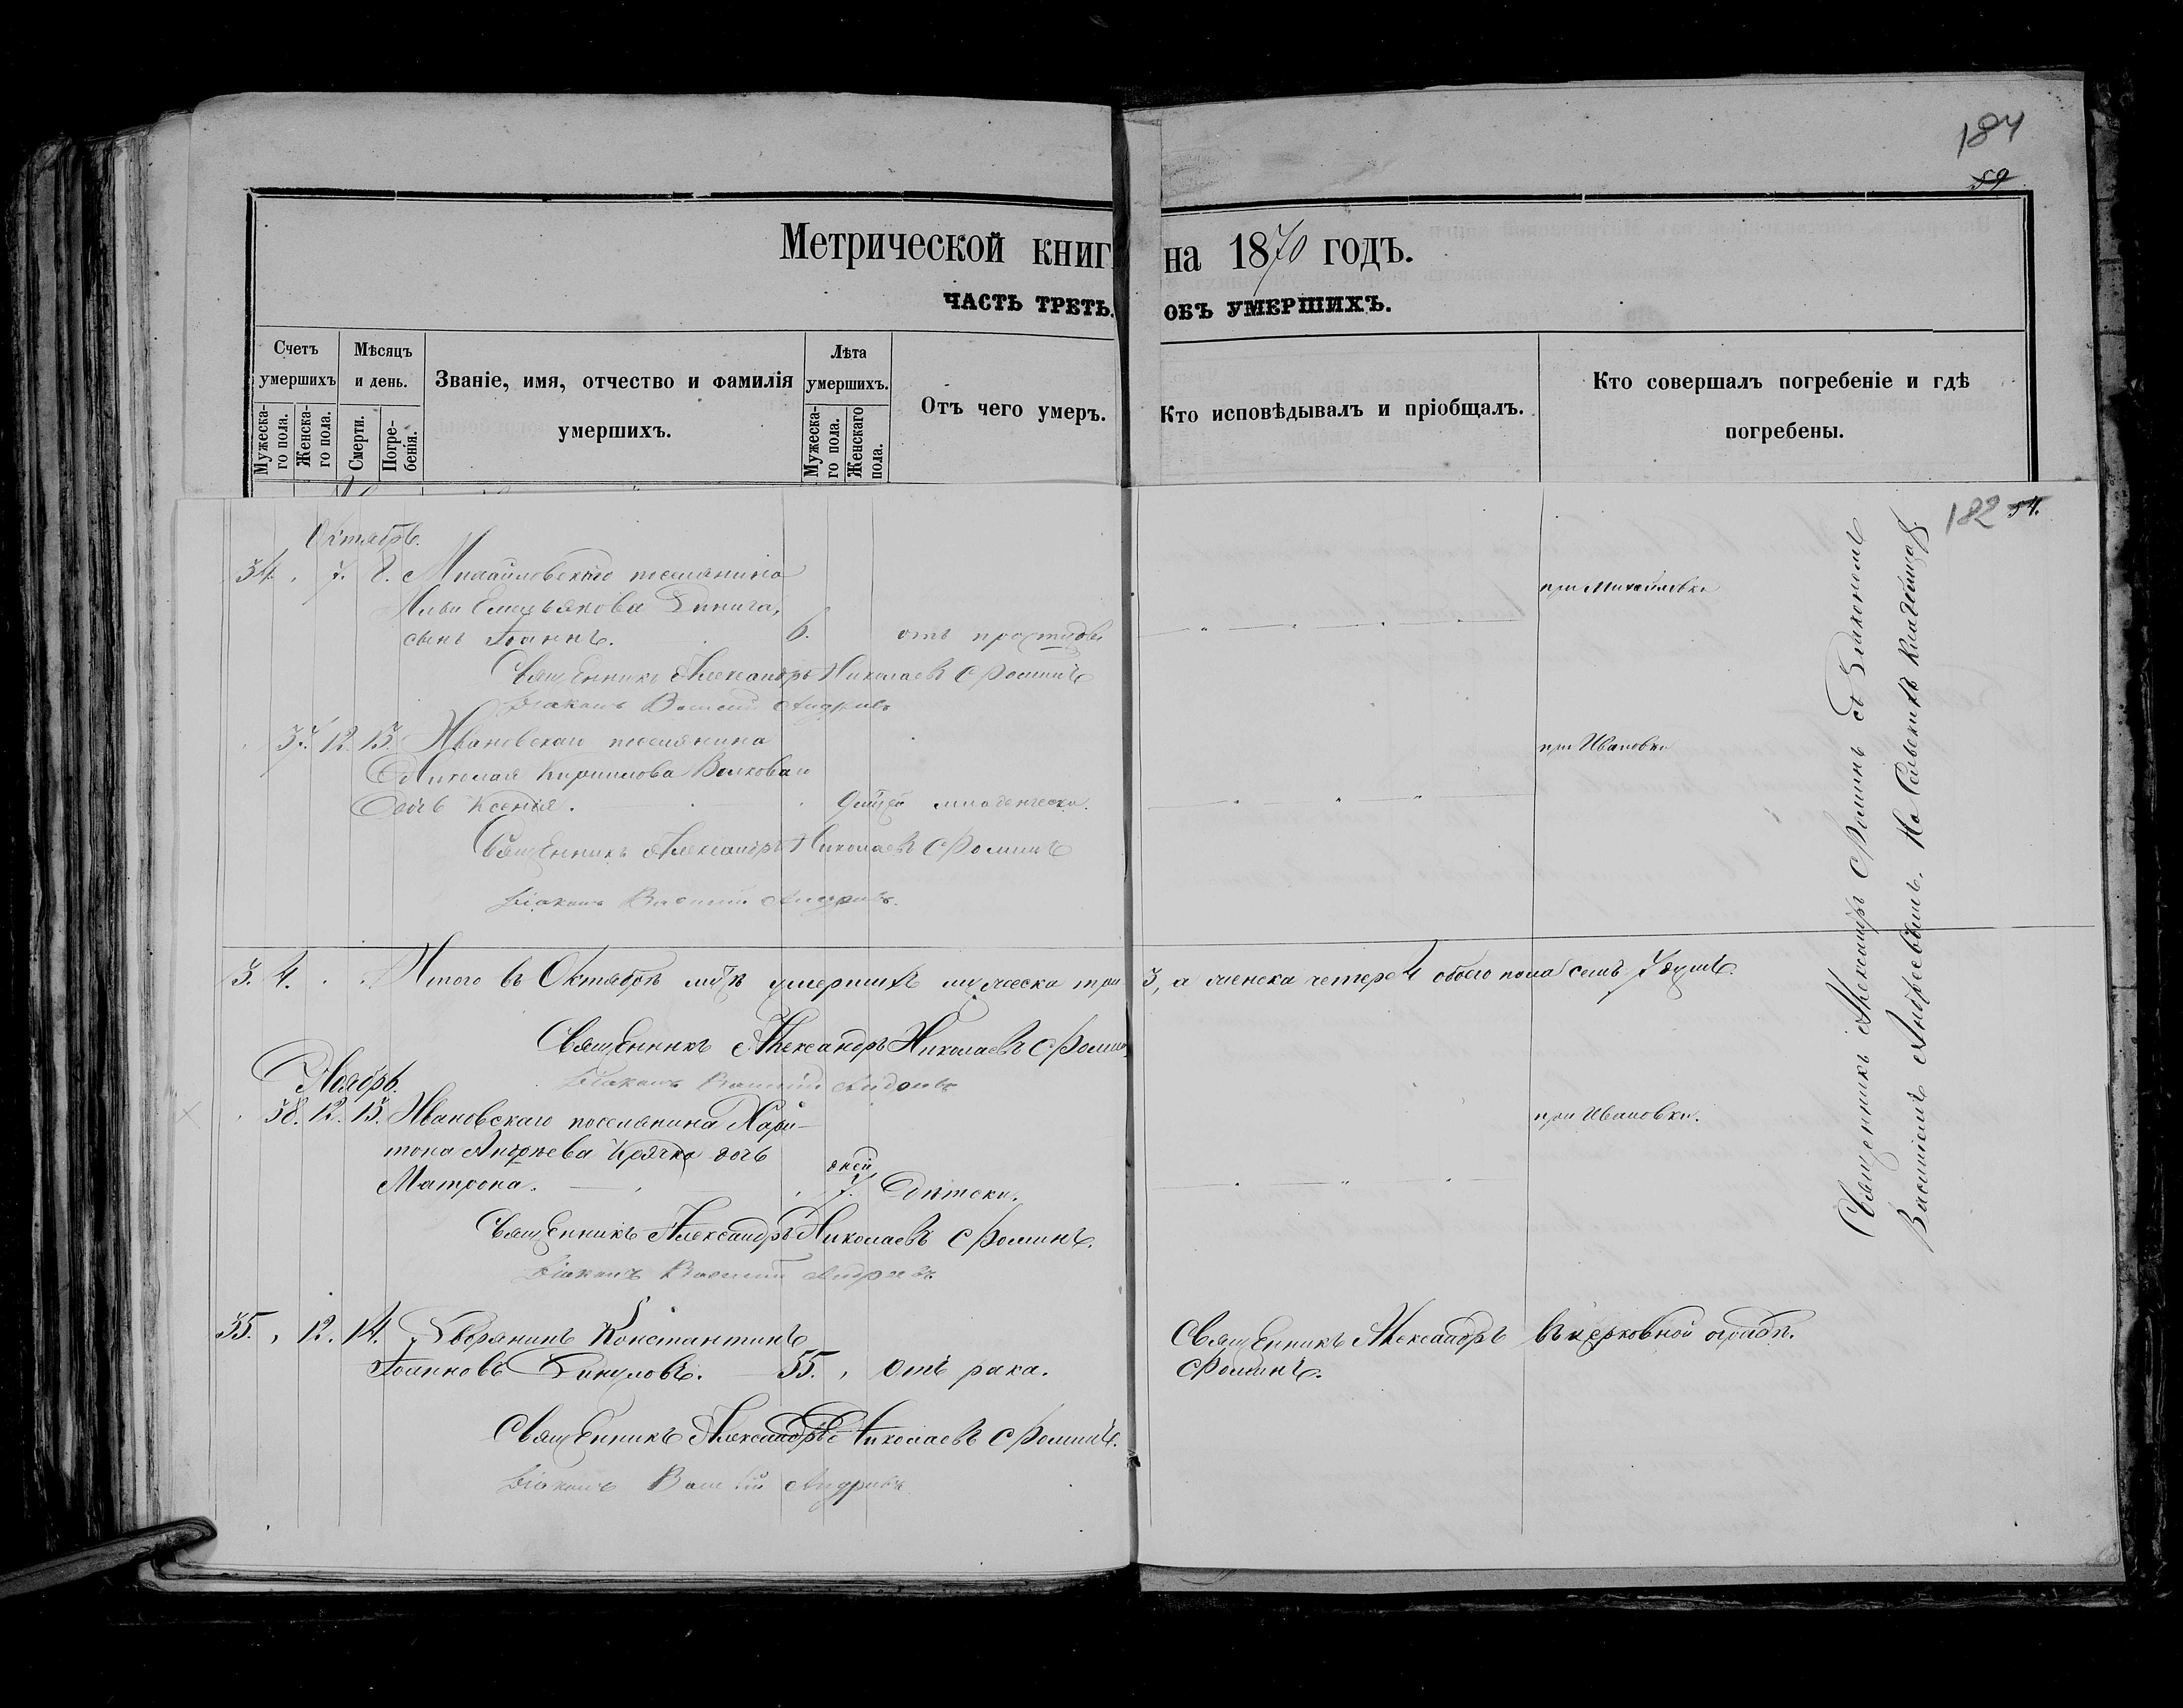 184
59
Метрической книг на 1870 годъ.
ЧАСТЬ ТРЕТЬ. ОБЪ УМЕРШИХЪ.
Счетъ умершихъ
Мужеска-го пола.
Женска-го пола.
Мѣсяцъ и день.
Смерти.
Погре-бенія.
Званіе, имя, отчество и фамилія умершихъ.
Лѣта умершихъ.
Мужеска-го пола.
Женскаго пола.
Отъ чего умеръ.
Кто исповѣдывалъ и пріобщалъ.
Кто совершалъ погребеніе и гдѣ погребены.
182 54.
Октябрь.
34. 7. 8. Михайловскаго поселянина
при Михайловки
сынъ Іоаннъ. 6. отъ простуды
Священникъ Александръ Николаевъ Фоминъ
Діаконъ Василій Андреевъ
37. 12. 13. Ивановскаго поселянина
при Ивановки
Николая Кирилова Волкова
дочь Ксенія. младенческ.
Священникъ Александръ Николаевъ Фоминъ
Діаконъ Василій Андреевъ.
3. 4. Итого въ Октябрѣ умершихъ мужеска три 3, а женска четыре 4 обоего пола семь 7 душъ.
Священникъ Александръ Николаевъ Фомин
Діаконъ Василій Андреевъ
Ноябрь.
38. 12. 13. Ивановскаго поселянина Хари-
при Ивановки.
тона Андреева Крячка дочь
дней
Матрона. 7. Дѣтски.
Священникъ Александръ Николаевъ Фоминъ.
Діаконъ Василій Андреевъ.
35. 12. 14. Дворянинъ Константинъ
Іоанновъ Дикуловъ. 55. Отъ рака.
Священникъ Александръ
Фоминъ.
въ церковной оградѣ.
Священникъ Александръ Николаевъ Фоминъ.
Діаконъ Василій Андреевъ
Священникъ Александръ Фоминъ съ Діакономъ
Василіемъ Андреевымъ. На Сельскихъ кладбищахъ.